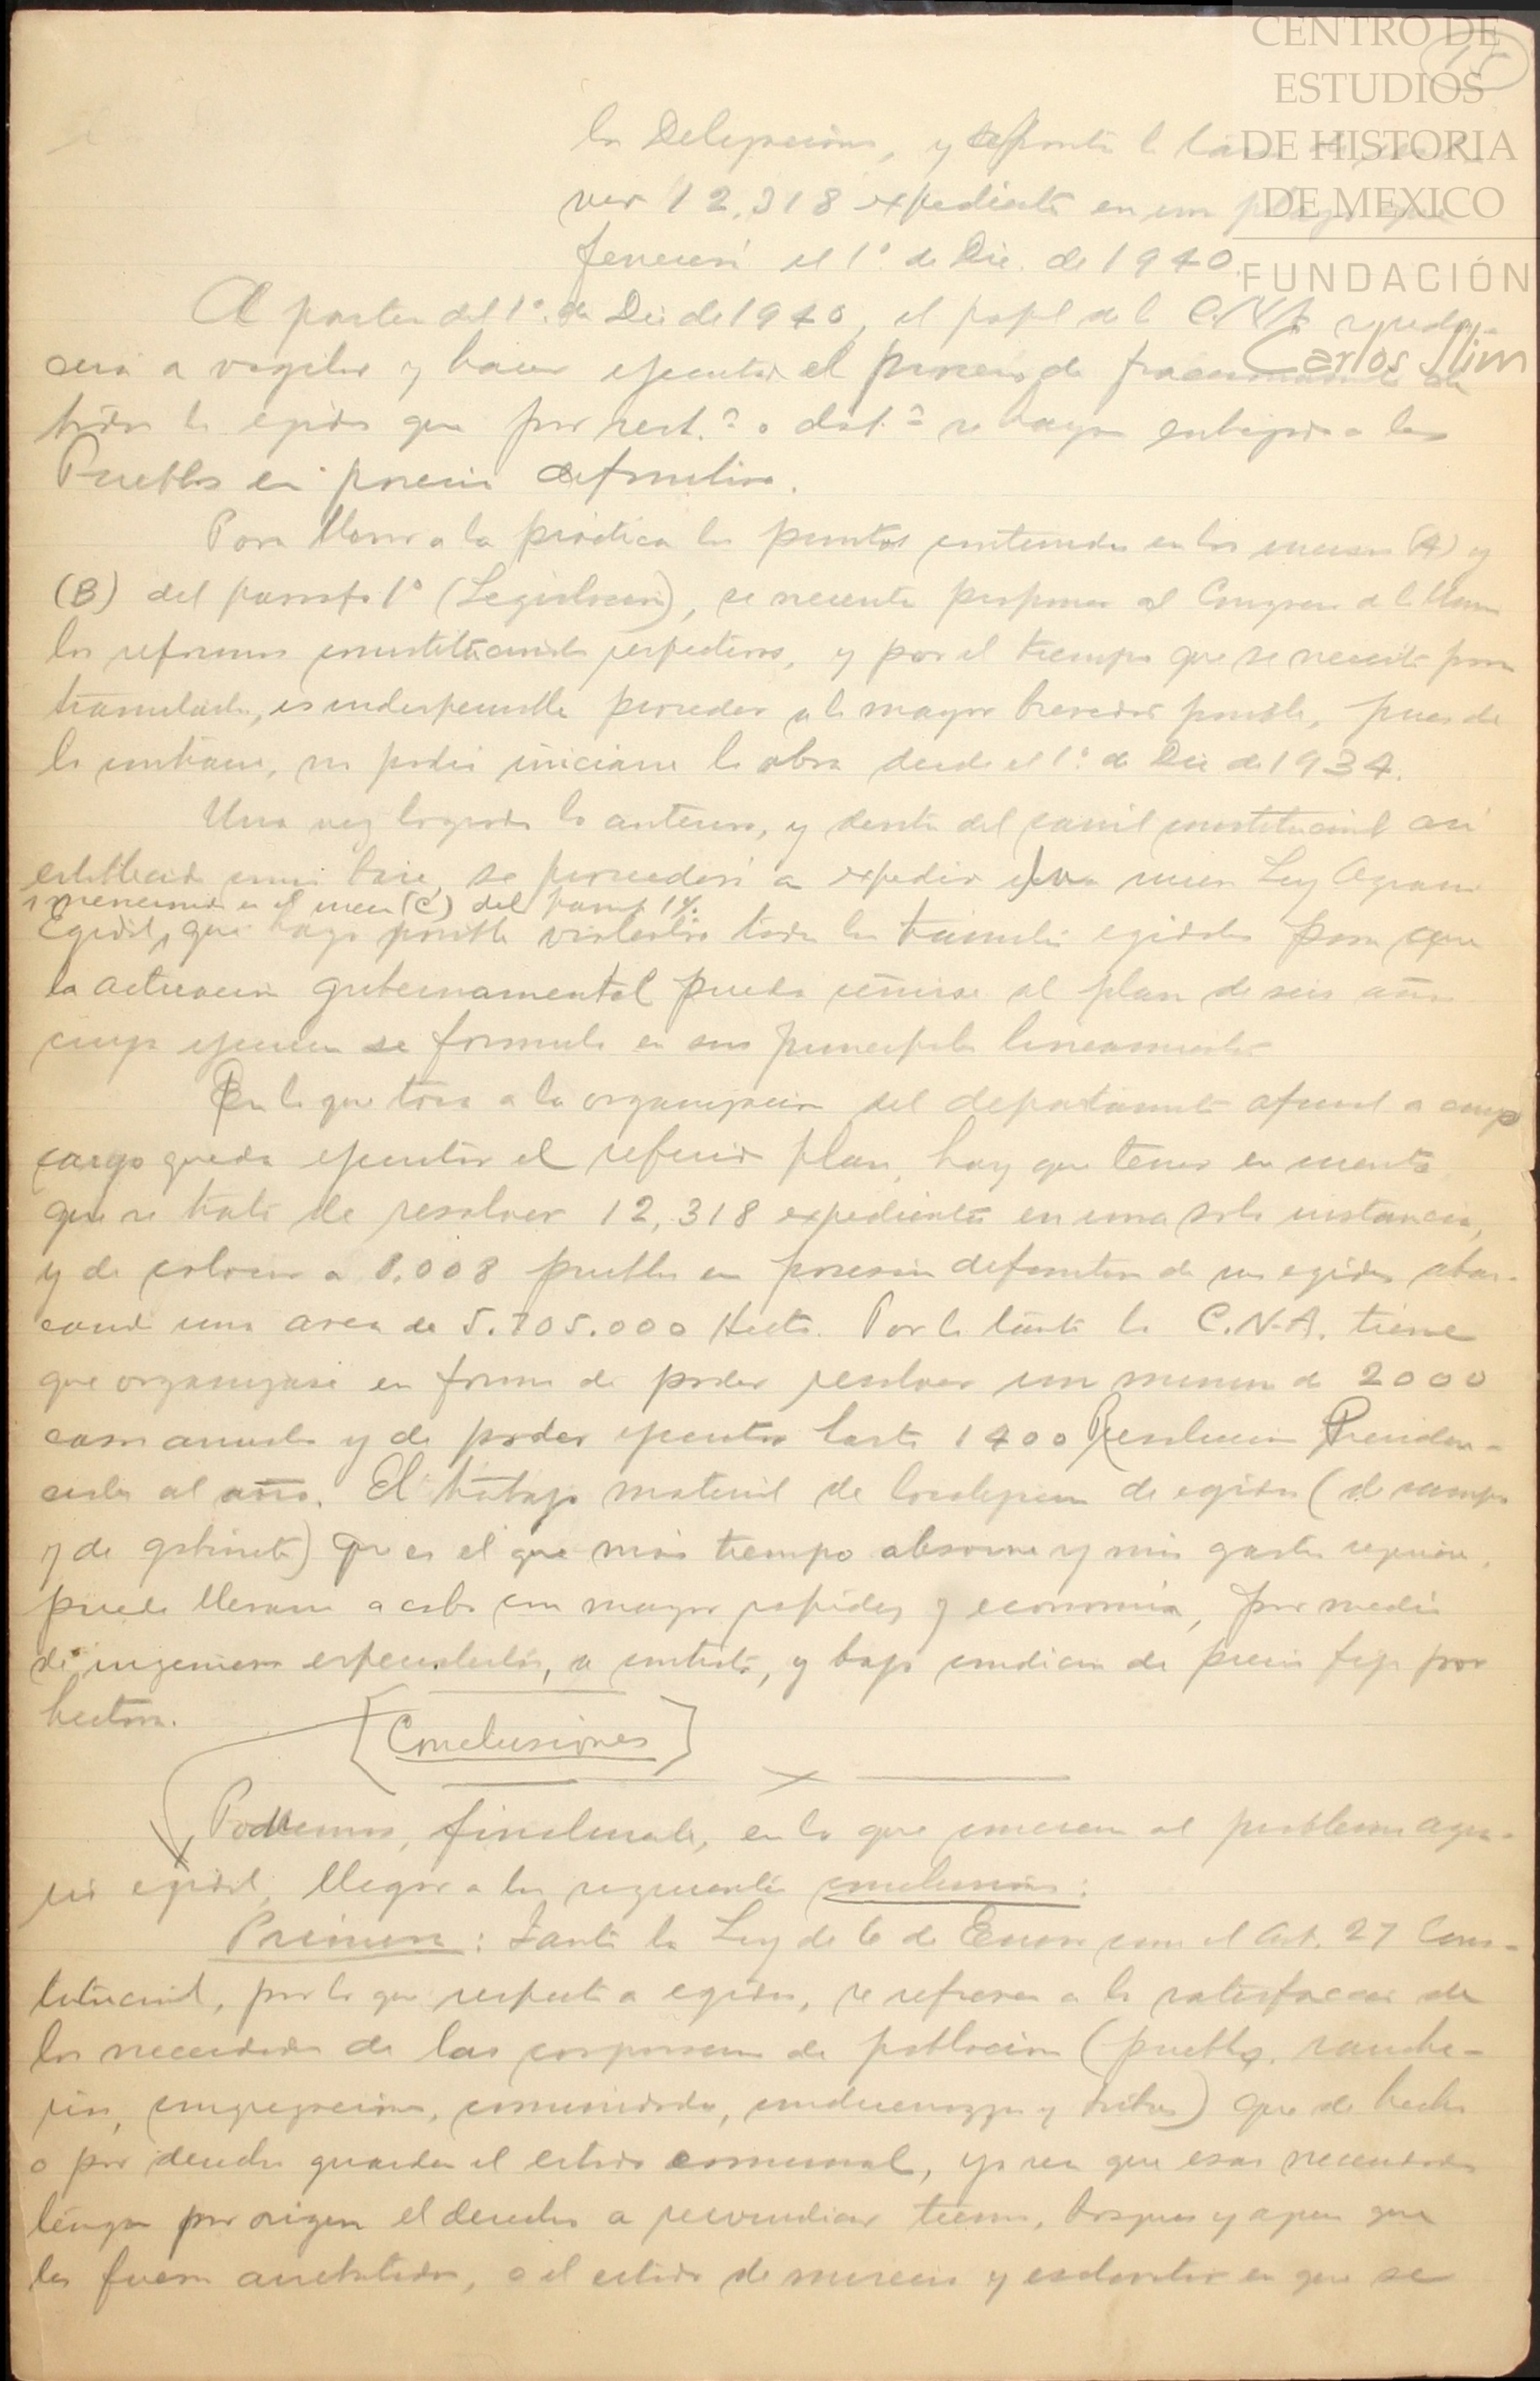 CENTRO DE
ESTUDIOS
DE HISTORIA
DE MEXICO
FUNDACIÓN
Carlos Slim
15
la Delegaciones, y afronta la
ver 12,318 expedientes en un plazo que
fenecerá el 1º de Dic. de 1940.
A partir del 1º de Dic de 1940, el papel de la C.N.A. se redu-
cirá a vigilar y hacer ejecutar el proceso de fraccionamiento de
todos los egidos que por rest.ⁿ o dot.ⁿ se hayan entregado a los
Pueblos en posesión definitiva.
Para llevar a la práctica los puntos contenidos en los incisos (A) y
(B) del párrafo 1º (Legislación), se necesita proponer al Congreso de la Unión
las reformas constitucionales respectivas, y por el tiempo que se necesita para
tramitarlas, es indispensable proceder a la mayor brevedad posible, pues de
lo contrario, no podrá iniciarse la obra desde el 1º de Dic de 1934.
Una vez logrado lo anterior, y dentro del carril constitucional así
establecido como base, se procederá a expedir una nueva Ley Agraria
mencionada en el inciso (C) del párrafo 1º.
Egidal, que haga posible violentar todos los trámites egidales para que
la actuación gubernamental pueda ceñirse al plan de seis años
cuya ejecución se formula en sus principales lineamientos
En lo que toca a la organización del departamento oficial a cuyo
cargo queda ejecutar el referido plan, hay que tener en cuenta
que se trata de resolver 12,318 expedientes en una sola instancia,
y de colocar a 8.008 pueblos en posesión definitiva de sus egidos abar-
cando una area de 5.705.000 Hects. Por lo tanto la C.N.A. tiene
que organizarse en forma de poder resolver un mínimo de 2000
casos anuales y de poder ejecutar hasta 1400 Resoluciones Presiden-
ciales al año. El trabajo material de localización de egidos (de campo
y de gabinete) que es el que más tiempo absorve y más gastos requiere,
puede llevarse a cabo con mayor rapidez y economía, por medio
de ingenieros especialistas, a contrato, y bajo condición de precio fijo por
hectárea.
[Conclusiones]
Podemos, finalmente, en lo que concierne al problema agra-
rio egidal, llegar a las siguientes conclusiones:
Primera: Tanto la Ley de 6 de Enero como el Art. 27 Cons-
titucional, por lo que respecta a egidos, se refieren a la satisfacción de
las necesidades de las corporaciones de población (pueblos, ranche-
rías, congregaciones, comunidades, condueñazgos y tribus) que de hecho
o por derecho guarden el estado comunal, ya sea que esas necesidades
tengan por origen el derecho a reivindicar tierras, bosques y aguas que
les fueron arrebatados, o el estado de miseria y esclavitud en que se